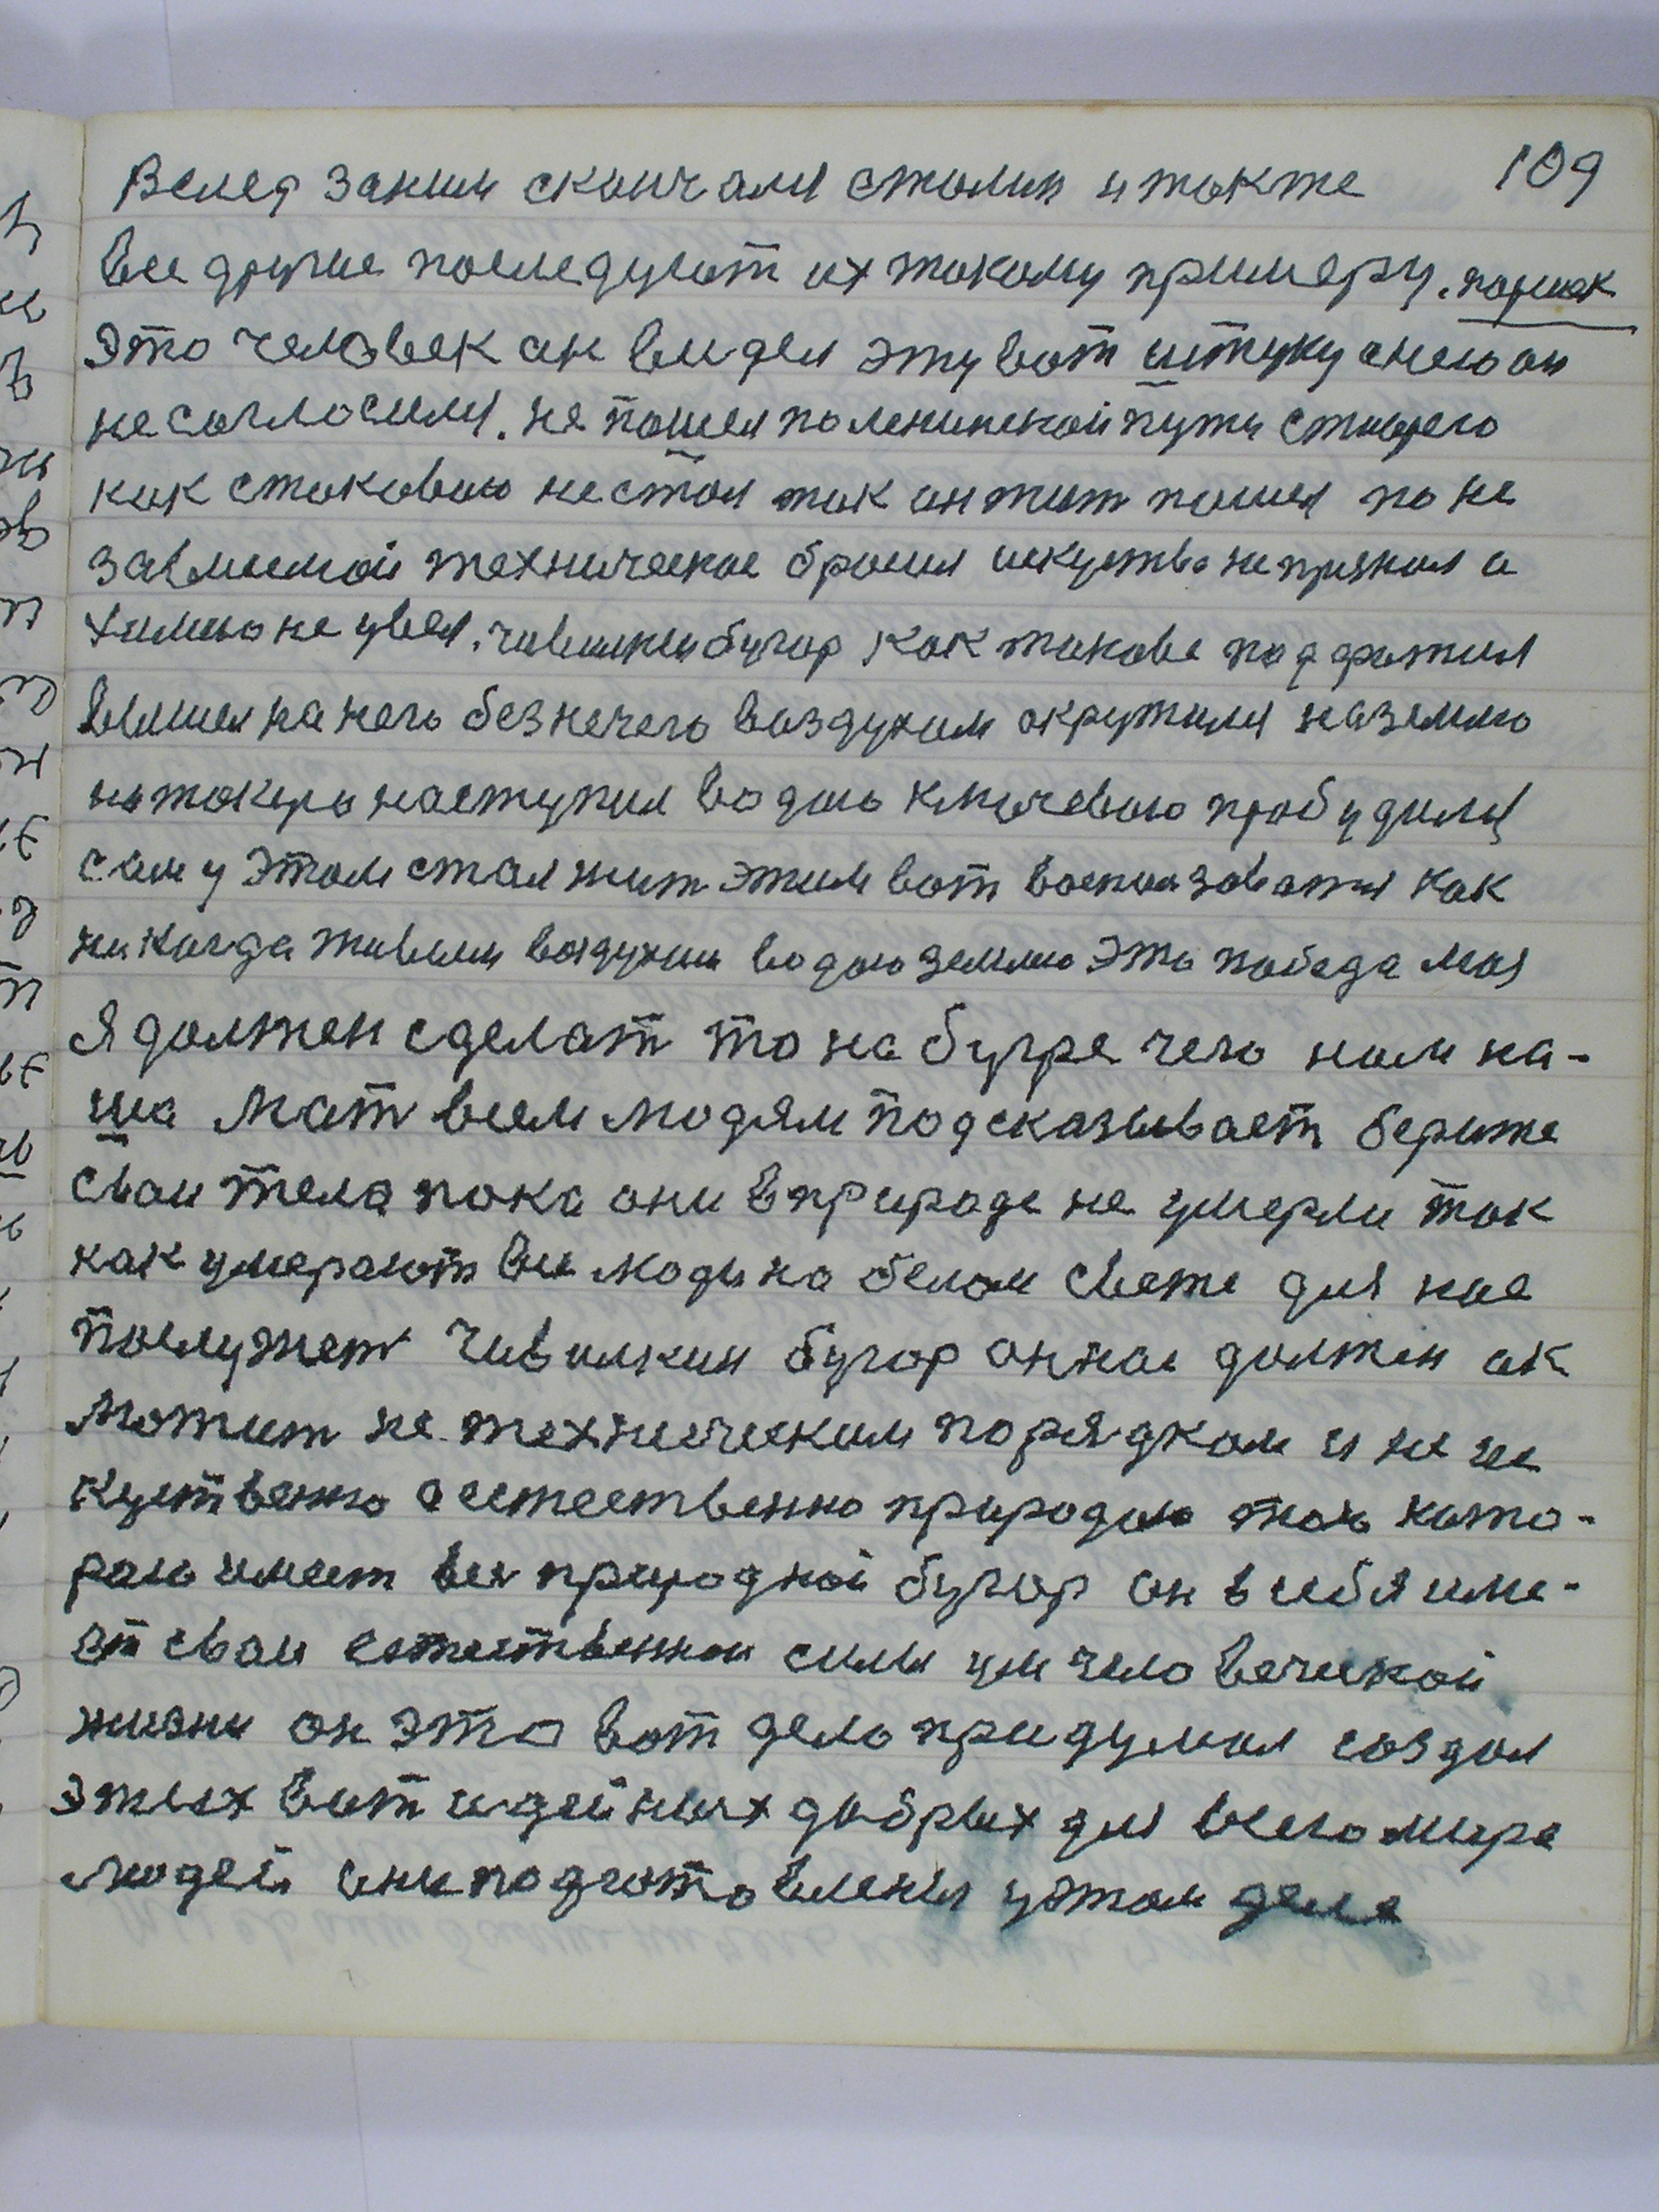 109
Вслед заним скончался сталин и также
все другие последуют их такому примеру. паршек
это человек он видел эту вот штуку снею он
несогласился. не пошел поленинской пути
как стаковою нестал так он жит пошел по не
зависимой техническое бросил искуство непризнал а
химию не увел. чивилкин бугор как такове подхватил
вышел на него безнечего воздухом окружился наземлю
наступил водою ключевою пробудился
сам у этом стал жит этим вот воспользоватся как
никогда живым воздухом водою землею это победа моя
Я должен сделат то на бугре чего нам на-
ша мат всем людям подсказывает берите
свои тела пока они вприроде не умерли так
как умерают все люди на белом свете для нас
послужет чивилкин бугор он нас должен ок
мотит не техническим порядком и не ис
куственно а естественно природою тою кото-
рою имеет вся природной бугор он в себя име-
ет свои естественнои силы ум человеческой
жизни он это вот дело придумал создал
этых вот идейных добрых для всего мира
людей они подготовлены у этом деле